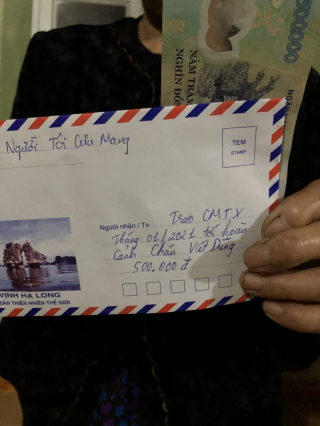 500000
NĂM TRĂM
NGHÌN ĐỒNG
Người Tối Cưu Mang
TEM
STAMP
Người nhận / To Trao CMTX
Tháng 01/2021 tới hoàn
Cảnh Cháu Viết Dũng
500.000 đ
VỊNH HẠ LONG
SẢN THIÊN NHIÊN THẾ GIỚI